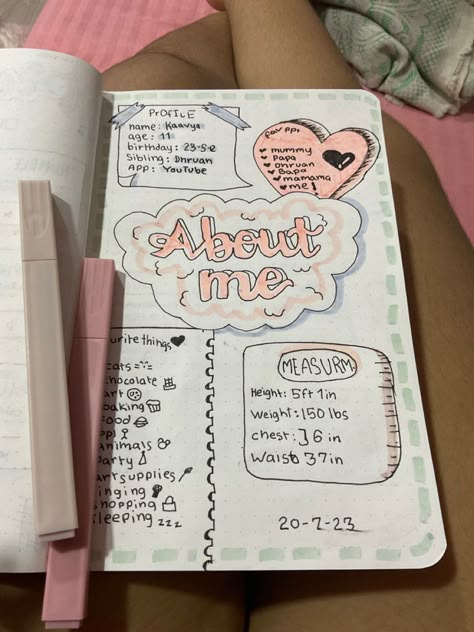 PrOfiLE
name: Kaavya
age: 11
birthday: 23-5-2
Sibling: Dhruan
APP: YouTube
fav ppl
mummy
Papa
Dhruan
Bapa
mamama
me!
About
me
urite things
cats
chocolate
art
baking
food
ppl
Animals
Party
art supplies
inging
hopping
leeping zzz
MEASURM.
Height: 5ft 1in
Weight: 150 lbs
chest: 36 in
Waist 37in
20-7-23